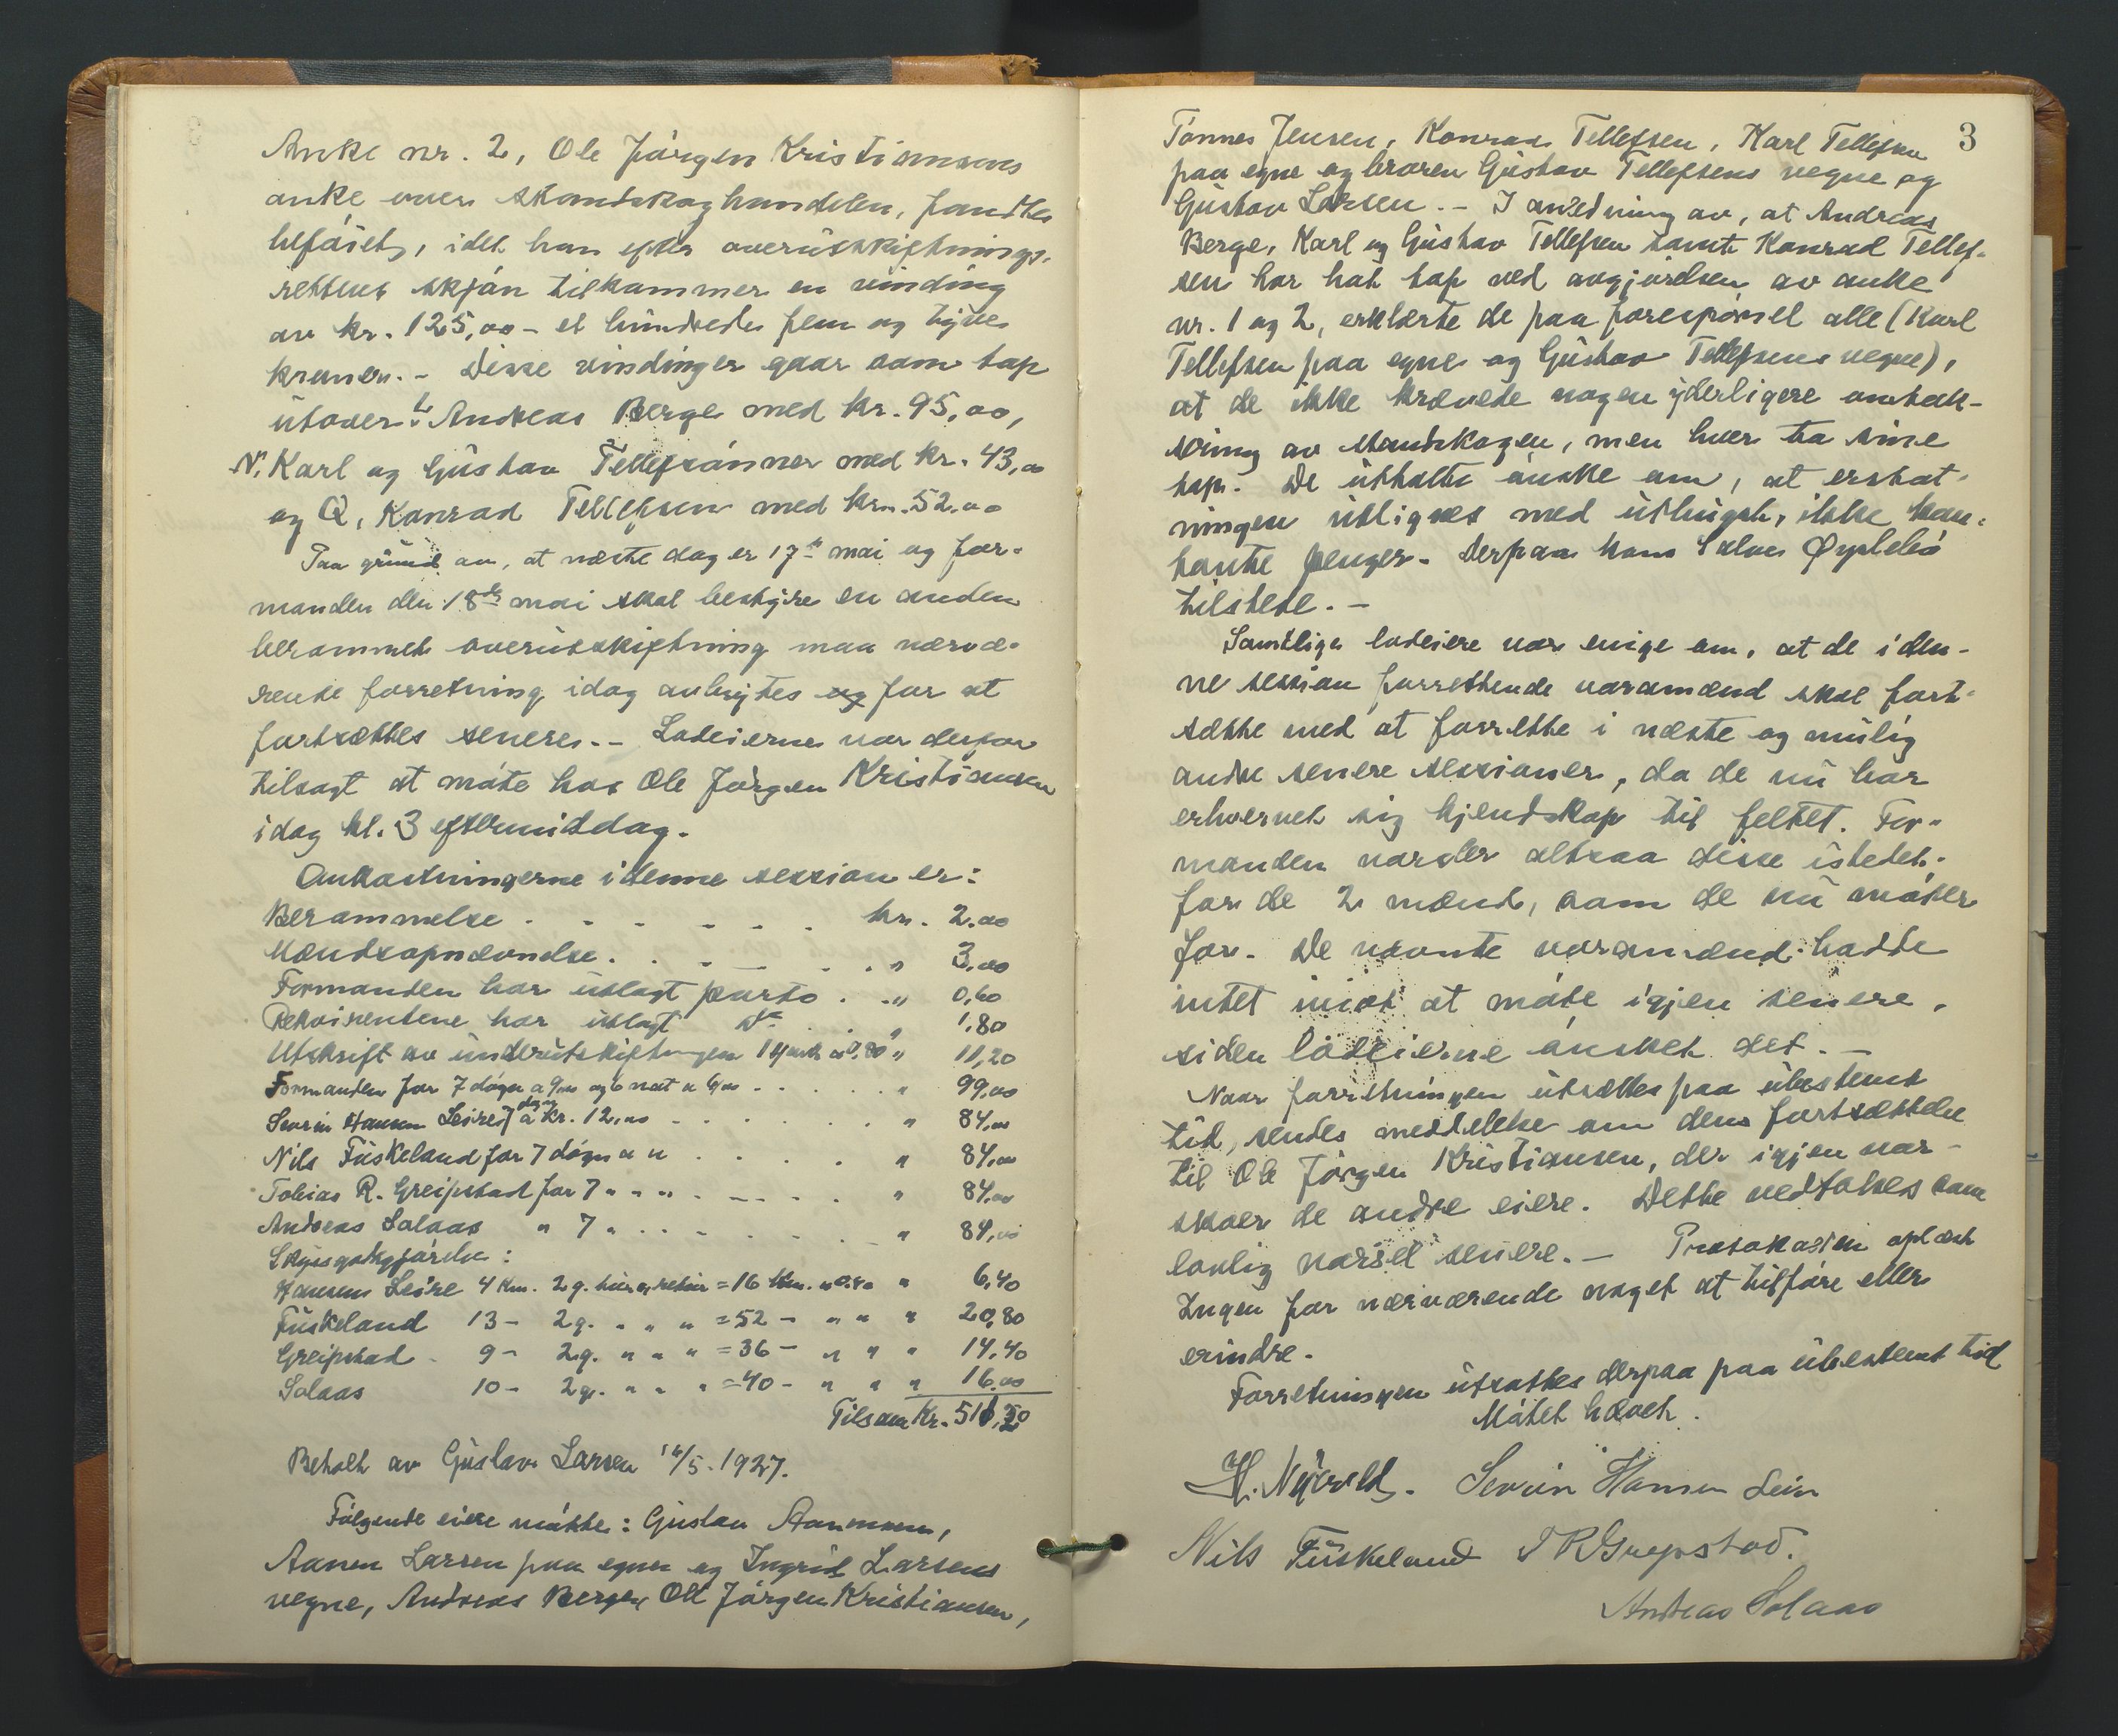 Anke nr. 2, Ole Jörgen Kristiansens
anke over standskoghandelen, fandtes
beföiet, idet han efter overutskiftnings-
rettens skjön tilkommer en vinding
av kr. 125,00 - et hundrede fem og tyve
kroner. - Disse vindinger gaar som tap
utover L. Andreas Berge med kr. 95,00,
N. Karl og Gustav Tellefsönner med kr. 43,00
og Q, Konrad Tellefsen med kr. 52.00
Paa grund av, at næste dag er 17de mai og for-
manden den 18de mai skal bestyre en anden
berammet overutskiftning maa nærvæ-
rende forretning idag avbrytes og for at
fortsættes senere. - Lodeierne var derfor
tilsagt at möte hos Ole Jörgen Kristiansen
idag kl. 3 eftermiddag.
Omkostningerne i denne session er:
Berammelse . . . . . . kr. 2.00
Mændsopnævnelse. . . . . . " 3,00
Formanden har utlagt porto . . " 0,60
Rekvirentene har utlagt do . . " 1,80
Utskrift av underutskiftningen 14 ark a 0,80 " 11,20
Formanden for 7 dögn a 9,00 og 6 nat a 6,00 . . . . " 99,00
Sevrin Hansen Leire 7 dögn a kr. 12,00 . . . . . " 84,00
Nils Fuskeland for 7 dögn " " . . . . " 84,00
Tobias R. Greipstad for 7 " " " . . . . " 84,00
Andreas Solaas " 7 " . . . . . " 84,00
Skysgodtgjörelse:
Hansen Leire 4 km. 2 g. tur og retur = 16 km. a 0.40 " 6,40
Fuskeland 13 - 2 g. " " " = 52 - " " " 20,80
Greipstad - 9 - 2 g. " " " = 36 - " " " 14,40
Solaas 10 - 2 g. " " " = 40 - " " " 16.00
Tilsam kr. 511,20
Betalt av Gustav Larsen 16/5. 1927.
Fölgende eiere mötte: Gustav Aanensen,
Aanen Larsen paa egne og Ingrid Larsens
vegne, Andreas Berge, Ole Jörgen Kristiansen,
3
Tönnes Jensen, Konrad Tellefsen, Karl Tellefsen
paa egne og broren Gustav Tellefsens vegne og
Gustav Larsen. - I anledning av, at Andreas
Berge, Karl og Gustav Tellefsen samt Konrad Tellef-
sen har hat tap ved avgjörelsen av anke
nr. 1 og 2, erklærte de paa forespörsel alle (Karl
Tellefsen paa egne og Gustav Tellefsens vegne),
at de ikke krævede nogen yderligere omtak-
sering av standskogen, men hver ta sine
tap. De uttalte önske om, at erstat-
ningen utlignes med uthugst, ikke kon-
tante penger. Derpaa kom Salve Øyslebö
tilstede. -
Samtlige lodeiere var enige om, at de i den-
ne session forrettende varamænd skal fort-
sætte med at forrette i næste og mulig
andre senere sessioner, da de nu har
erhvervet sig kjendskap til feltet. For-
manden varsler altsaa disse istedet-
for de 2 mænd, som de nu möter
for. De nævnte varamænd hadde
intet imot at möte igjen senere,
siden lodeierne önsket det. -
Naar forretningen utsættes paa ubestemt
tid, sendes meddelelse om dens fortsættelse
til Ole Jörgen Kristiansen, der igjen var-
skoer de andre eiere. Dette vedtokes som
lovlig varsel senere. - Protokollen oplæst
Ingen for nærværende noget at tilföre eller
erindre.
Forretningen utsattes derpaa paa ubestemt tid
Mötet hævet.
H. Nyvold. Sevrin Hansen Leire
Nils Fuskeland T R Greipstad.
Andreas Solaas